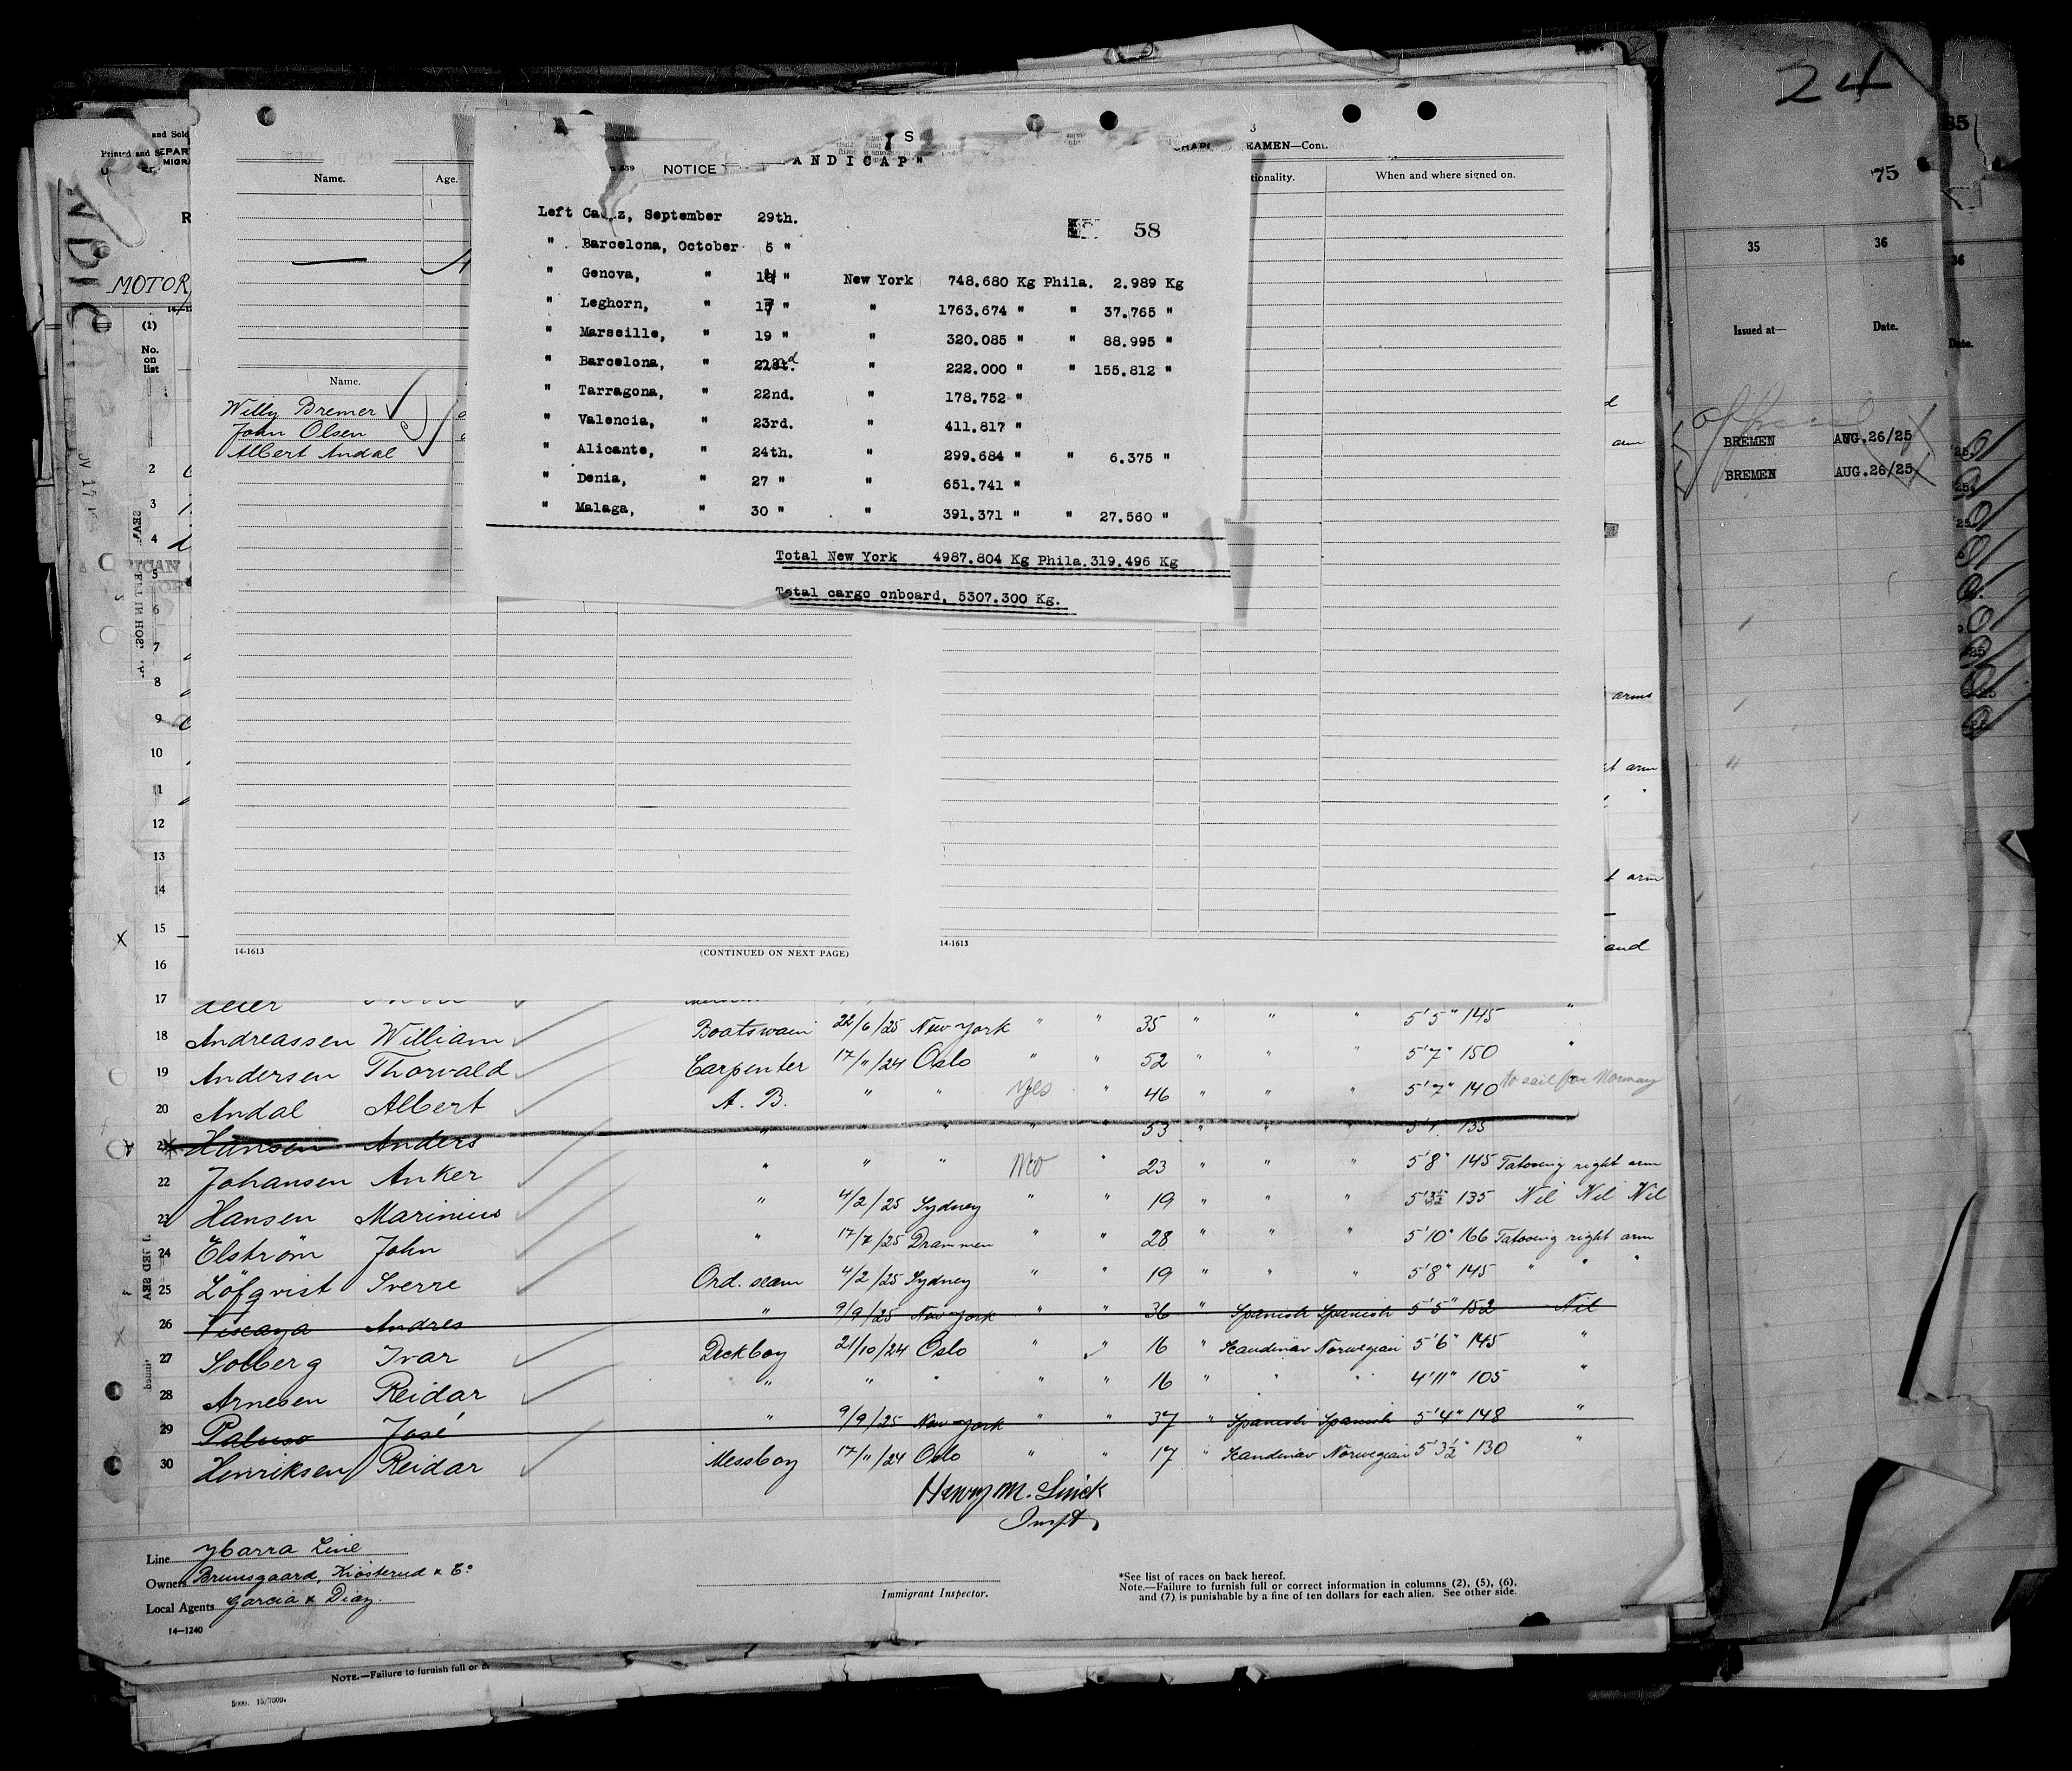 24
75
35
35 36
Issued at— Date.
BREMEN AUG.26/25
BREMEN AUG.26/25
and Sold
Printed and S
MIGRA
MOTOR
(1)
No.
on
list
EAMEN—Cont.
Name. Age. tionality. When and where signed on.
NOTICE ANDICAP"
58
Left Ca z, September 29th.
" Barcelona, October 6 "
" Genova, " 14 " New York 748.680 Kg Phila. 2.989 Kg
" Leghorn, " 17 " " 1763.674 " " 37.765 "
" Marseille, " 19 " " 320.085 " " 88.995 "
" Barcelona, " 22nd " 222.000 " " 155.812 "
" Tarragona, " 22nd. " 178.752 "
" Valencia, " 23rd. " 411.817 "
" Alicante, " 24th. " 299.684 " " 6.375 "
" Denia, " 27 " " 651.741 "
" Malaga, " 30 " " 391.371 " " 27.560 "
Total New York 4987.804 Kg Phila.319.496 Kg
Total cargo onboard, 5307.300 Kg.
Name.
Willy Bremer
John Olsen
Albert Andal
2
3
4
5
6
7
8
9
10
11
12
13
14
15
16
arm
arms
arm
arm
and
14-1613 (CONTINUED ON NEXT PAGE) 14-1613
17
18 Andreassen William Boatswain 22/6/25 New York " " 35 " " " 5'5" 145 "
19 Andersen Thorvald Carpenter 17/11/24 Oslo " " 52 " " " 5'7" 150 "
20 Andal Albert A. B. " " yes " 46 " " " 5'7" 140 to sail for Norway
21 Hansen Anders " " " " " 53 " " " 135
22 Johansen Anker " " " No " 23 " " " 5'8" 145 Tatooing right arm
23 Hansen Marinius " 4/2/25 Sydney " " 19 " " " 5'3½ 135 Nil Nil Nil
24 Elström John " 17/7/25 Drammen " " 28 " " " 5'10" 166 Tatooing right arm
25 Löfqvist Sverre Ord. seam 4/2/25 Sydney " " 19 " " " 5'8" 145 " " "
26 Viscaya Andres " 9/9/25 New York " " 36 " Spanish Spanish 5'5" 152 Nil
27 Solberg Ivar Deckboy 21/10/24 Oslo " " 16 " Scandinav Norwegian 5'6" 145 "
28 Arnesen Reidar " " " " " 16 " " " 4'11" 105 "
29 José " 9/9/25 New York " " 37 " Spanish Spanish 5'4" 148 "
30 Henriksen Reidar Messboy 17/11/24 Oslo " " 17 " Scandinav Norwegian 5'3½" 130 "
Henry M. Linck
Inspt
Line Ybarra Line
Owners Bruusgaard, Kiösterud & Co
Local Agents Garcia & Diaz.
14—1240
Immigrant Inspector.
*See list of races on back hereof.
Note.—Failure to furnish full or correct information in columns (2), (5), (6),
and (7) is punishable by a fine of ten dollars for each alien. See other side.
NOTE.—Failure to furnish full or